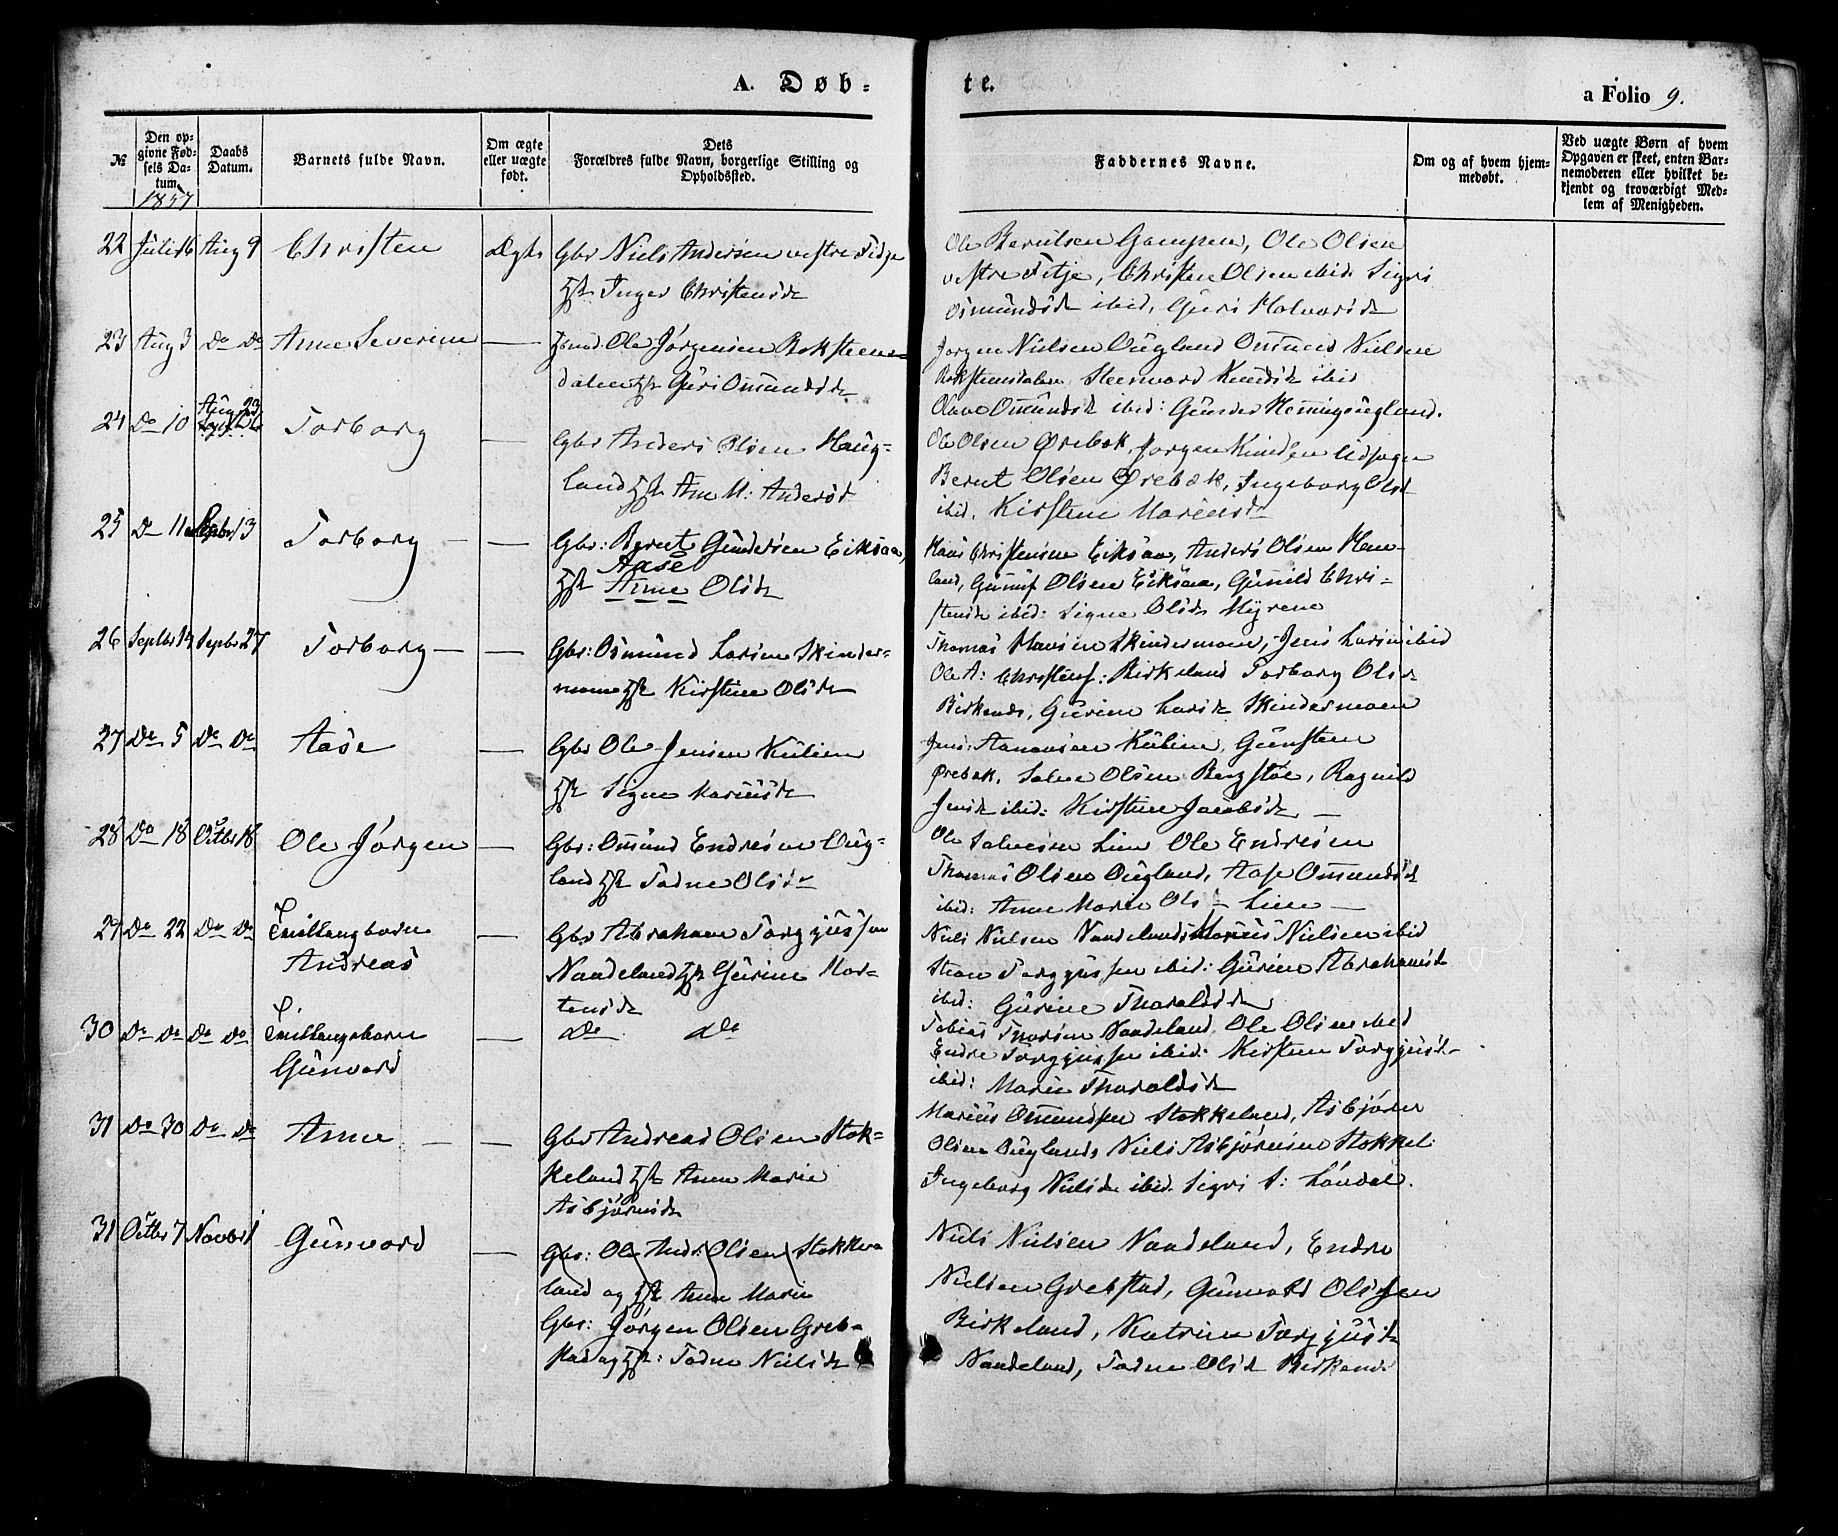 A. Døb-
te.
a Folio 9.
№
Den opgivne Fødsels Datum.
1857
Daabs Datum.
Barnets fulde Navn.
Om ægte eller uægte født.
Dets Forældres fulde Navn, borgerlige Stilling og Opholdssted.
Faddernes Navne.
Om og af hvem hjemmedøbt.
Ved uægte Børn af hvem Opgaven er skeet, enten Barnemoderen eller hvilket bekjendt og troværdigt Medlem af Menigheden.
22 Juli 16 Aug 9 Christen Ægte Gbr Niels Andersen vestre Fidje
Hst Inger Christensdt
Ole Berntsen Gampen, Ole Olsen
vestre Fitje, Christen Olsen ibid. Sigri
Osmundsdt ibid, Guri Halvorsdt
23 Aug 3 Do Do Anne Severine — Hmd Ole Jørgensen Roksteens-
dalen Hst Guri Omundsdt
Jørgen Nielsen Ougland Omund Nielsen
Roksteensdalen, Steenvord Knudsdt ibid
Olave Omundsdt ibid: Gunder Hemingsugland.
24 Do 10 Aug 23 Torborg — Gbr Anders Olsen Haug-
land Hst Ane M: Andersdt
Ole Olsen Ørebæk, Jørgen Knudsen Udhaugen
Bernt Olsen Ørebæk, Ingeborg Olsdt
ibid. Kirstine Mariusdt
25 Do 11 Septbr 13 Torborg — — Gbr: Bernt Gundersen Eiksaa,
Aase
Hst Anne Olsdt
Hans Christensen Eiksaa, Anders Olsen Hau-
land, Gunuf Olsen Eiksaa, Gunild Chri-
stensdt ibid: Signe Olsdt Myrene
26 Septbr 14 Sepbr 27 Torborg — — Gbr: Osmund Larsen Skinder-
moen Hst Kirstine Olsdt
Thomas Hansen Skindermoen, Jens Larsen ibid
Ole A: Christens: Birkeland Torborg Olsdt
Birkends, Gurine Larsdt Skindermoen
27 Do 5 Do Do Aase — Gbr Ole Jensen Kulien
Hst Signe Mariusdt
Jens Aanonsen Kulien, Gunsten
Ørebæk, Salve Olsen Bergstøe, Ragnild
Jensdt ibid: Kirstine Jacobsdt —
28 Do 18 Octbr 18 Ole Jørgen — Gbr: Omund Endresen Oug-
land Hst Tadne Olsdt
Ole Salvesen Lien Ole Endresen
Thomas Olsen Ougland, Aase Omundsdt
ibid: Anne Marie Ols — Lien —
29 Do 22 Do Do Tvillingbarn
Andreas — Gbr Abraham Torgjussen
Naadeland Hst Gurine Mor-
tensdt
Niels Nielsen Naadeland Marius Nielsen ibid
Steen Torgjussen ibid: Gurine Abrahamsdt
ibid: Gurine Tharaldsdt
30 Do Do Do Do Tvillingebarn
Gunvord — Do Do
Tobias Thorsen Naadeland, Ole Olsen ibid
Endre Torgjussen ibid: Kirsten Torgjusdt
ibid: Marie Tharaldsdt
31 Do 30 Do Do Anne — — Gbr Andreas Olsen Stok-
keland Hst Anne Marie
Asbjørnsdt
Marius Omundsen Stokkeland, Asbjørn
Olsen Ouglands Niels Asbjørnsen Stokkel:
Ingeborg Nielsdt ibid. Sigri S: Løndal.
31 Octbr 7 Novbr 1 Gunvord — Gbr: Ole Andr: Olsen Stokke-
land og Hst Anne Marie
Gbr: Jørgen Olsen Greb-
stad og Hst: Tadne Nielsdt
Niels Nielsen Naadeland, Endre
Nielsen Grebstad, Gunvald Olsen
Birkeland, Katrine Torgjusdt
Naadeland, Tadne Olsdt Birkend: